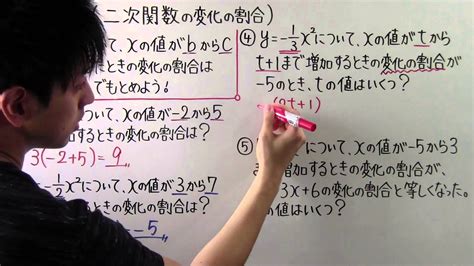 二次関数の変化の割合)
について、xの値がbからc
たときの変化の割合は
でもとめよう!
について、xの値が-2から5
加するときの変化の割合は?
3(-2+5)=9
-1/2x²について、xの値が3から7
ときの変化の割合は?
=-5
④ y=-1/3x²について、xの値がtから
t+1まで増加するときの変化の割合が
-5のとき、tの値はいくつ?
(2t+1)
⑤
について、xの値が-5から3
増加するときの変化の割合が、
3x+6の変化の割合と等しくなった。
の値はいくつ?